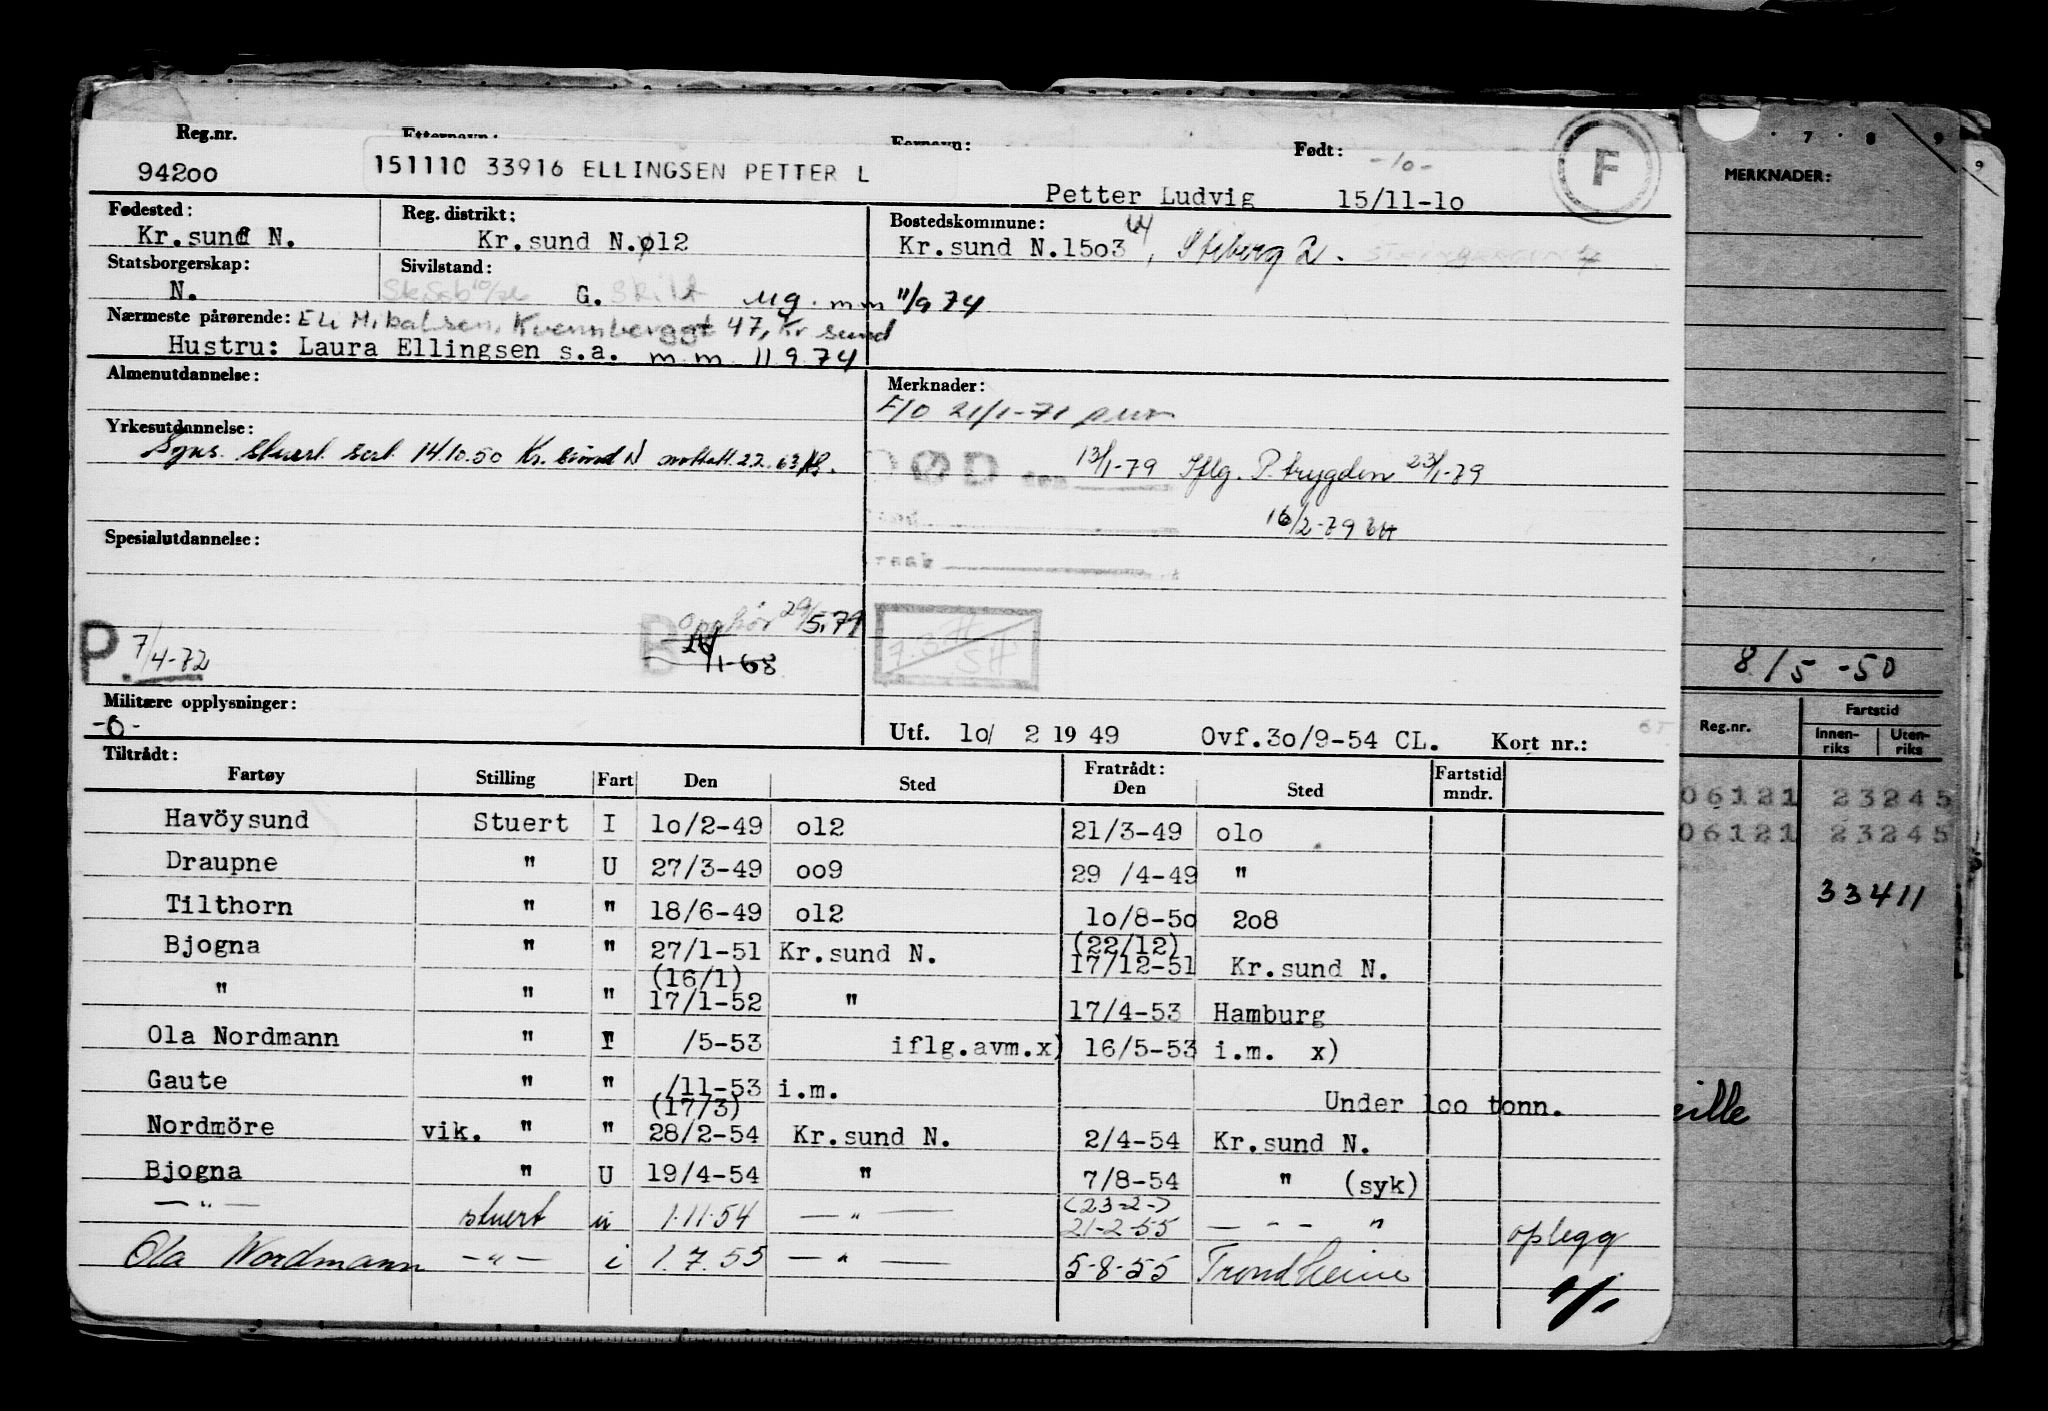 Reg.nr. Etternavn: Fornavn: Født: -10- F
94200 151110 33916 ELLINGSEN PETTER L Petter Ludvig 15/11-1o
Fødested: Reg. distrikt: Bostedskommune:
Kr.sund N. Kr.sund N.ø12 Kr.sund N.15o3, 
Statsborgerskap: Sivilstand:
N. G. Skilt ug. m.m 11/9 74
Nærmeste pårørende: Eli Mikalsen, Kvennberggt 47, Kr sund
Hustru: Laura Ellingsen s.a. m.m. 11 9 74
Almenutdannelse: Merknader:
F/O 21/1-71
Yrkesutdannelse:
Syns. stuert sert. 14.10.50 Kr. sund N mottatt 2.2. 63
DØD den 13/1-79 Iflg. P.trygden 23/1-79
16/2-79
Spesialutdannelse:
Opphör 29/5.79
P. 7/4-72 B /1-63
Militære opplysninger:
-0- Utf. 1o/ 2 19 49 Ovf.3o/9-54 CL. Kort nr.:
Tiltrådt: Fratrådt:
Fartøy Stilling Fart Den Sted Den Sted Fartstid mndr.
Havöysund Stuert I 1o/2-49 o12 21/3-49 o1o
Draupne " U 27/3-49 oo9 29 /4-49 "
Tilthorn " " 18/6-49 o12 1o/8-5o 2o8
Bjogna " " 27/1-51 Kr.sund N. (22/12) 17/12-51 Kr.sund N.
" " " (16/1) 17/1-52 " 17/4-53 Hamburg
Ola Nordmann " I /5-53 iflg.avm.x) 16/5-53 i.m. x)
Gaute " " /11-53 i.m. Under 1oo tonn.
Nordmöre vik. " " (17/3) 28/2-54 Kr.sund N. 2/4-54 Kr.sund N.
Bjogna " U 19/4-54 " 7/8-54 " (syk)
— " — stuert u 1.11.54 — " — (23-2-) 21-2-55 — " oplegg
Ola Nordmann — " — i 1.7.55 — " — 5-8-55 Trondheim
7 8 9
MERKNADER:
8/5 -50
Reg.nr. Fartstid
Innen-riks Uten-riks
06121 23245
06121 23245
33411
9